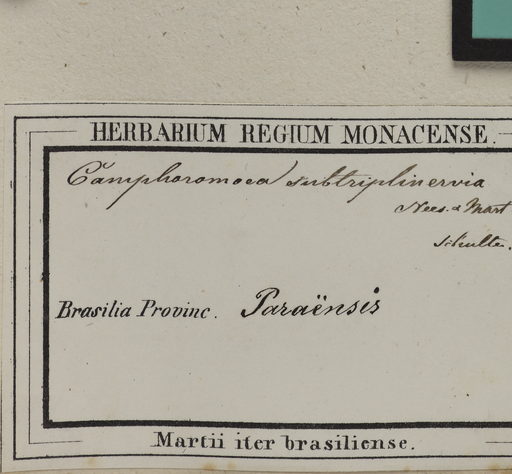 HERBARIUM REGIUM MONACENSE.
Camphoromoea subtriplinervia
Nees. & Mart
Brasilia Provinc. Paraënsis
Martii iter brasiliense.